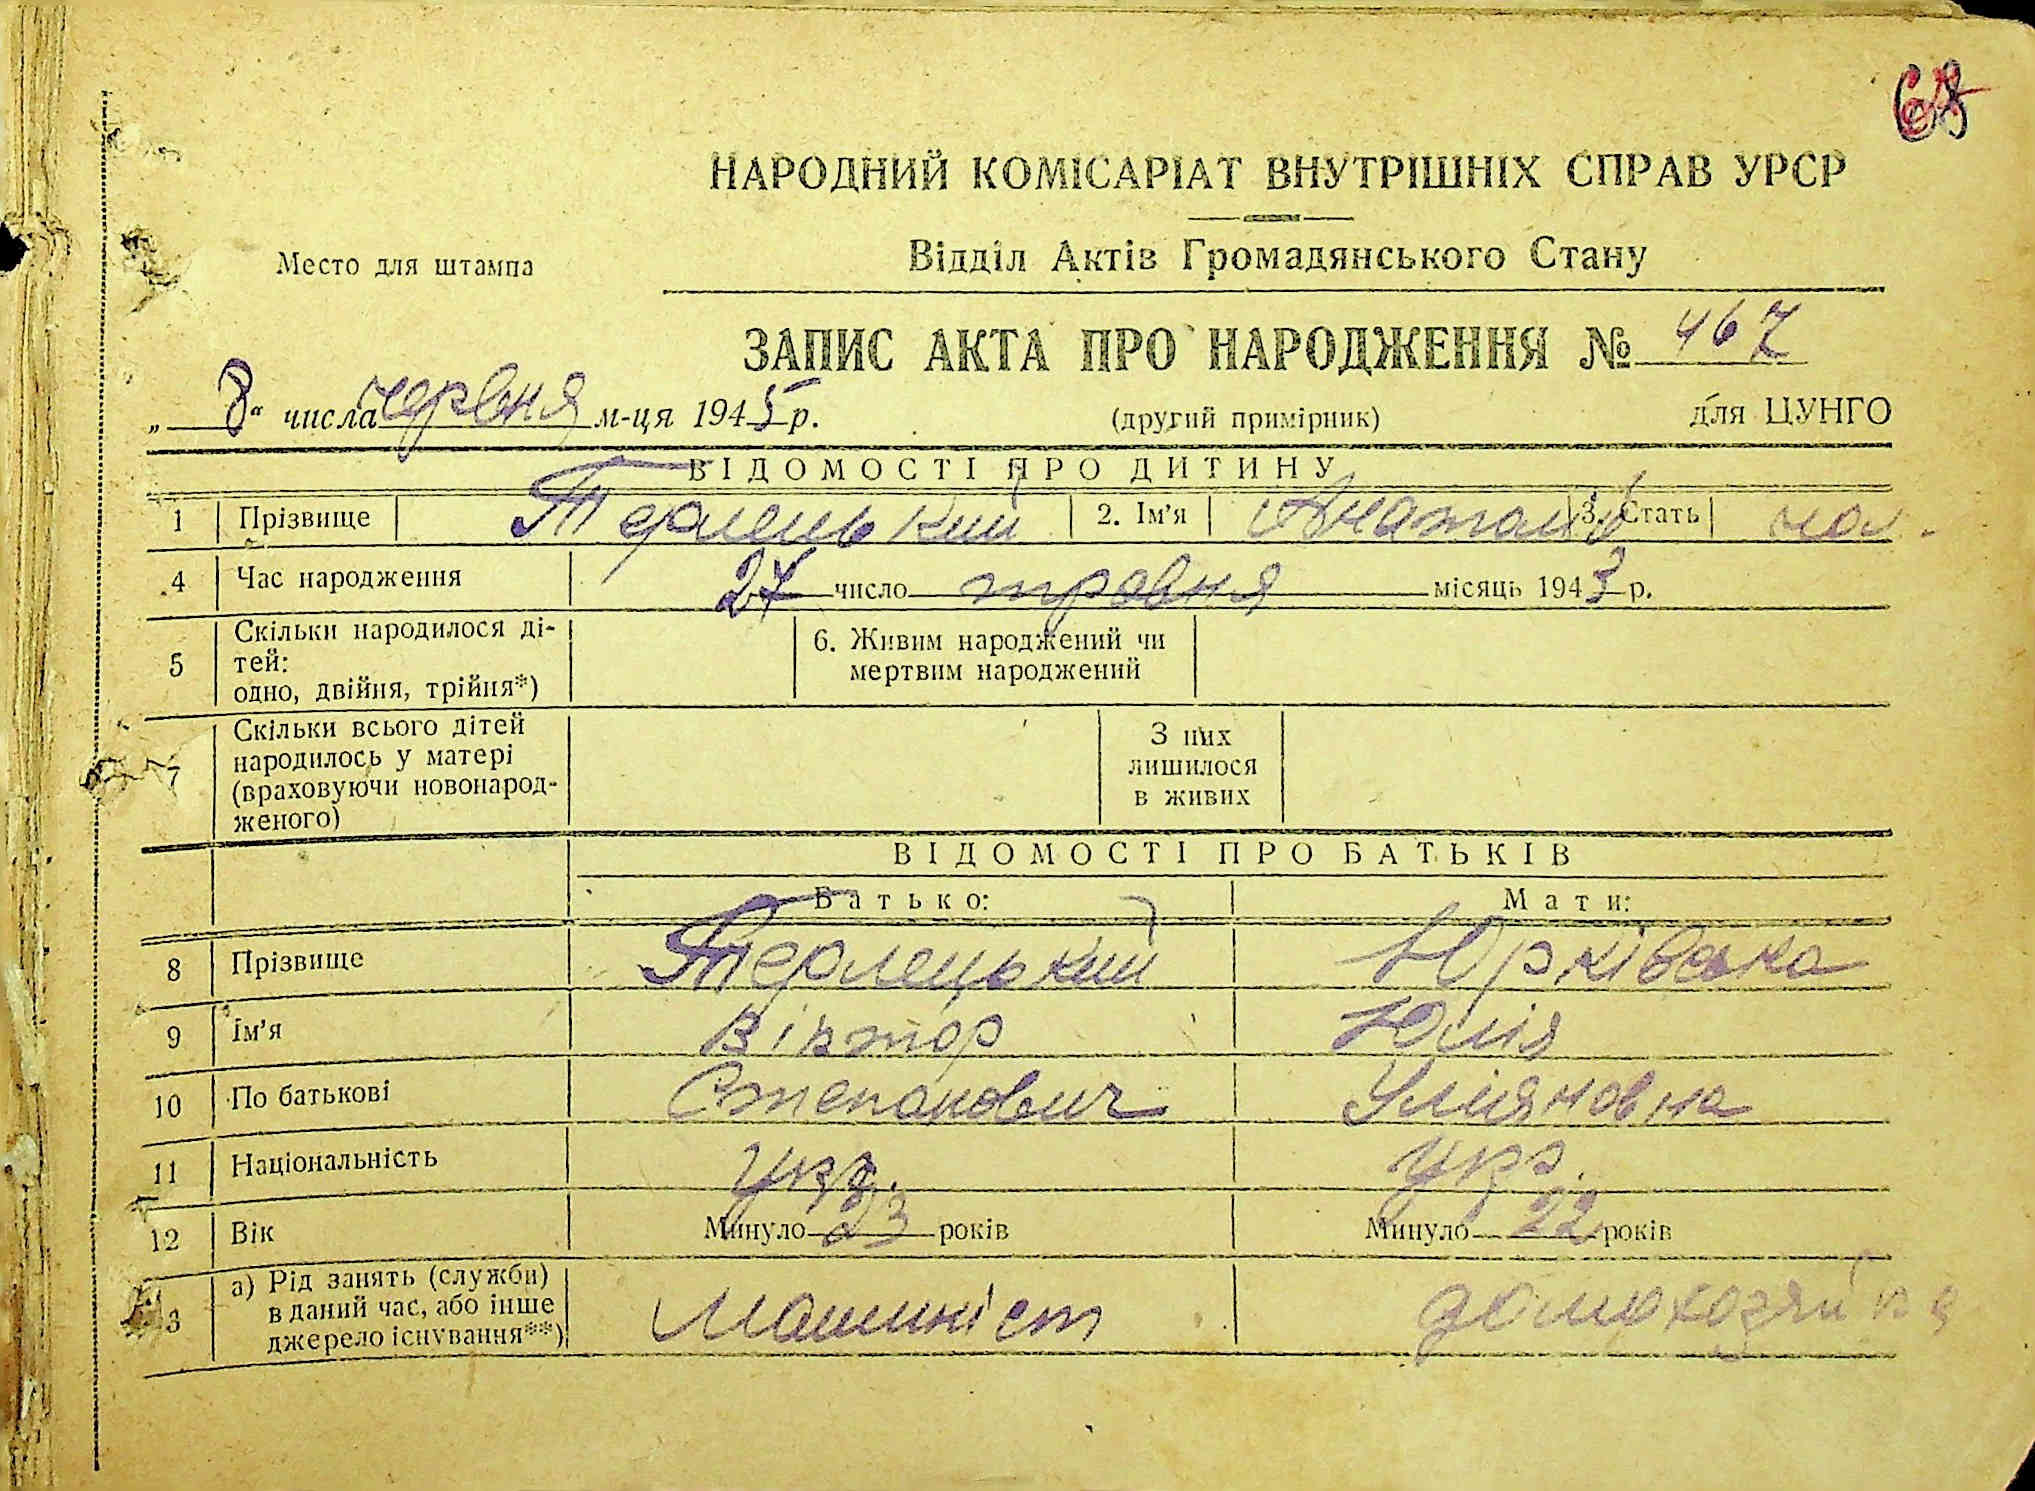 68
НАРОДНИЙ КОМІСАРІАТ ВНУТРІШНІХ СПРАВ УРСР
Место для штампа
Відділ Актів Громадянського Стану
ЗАПИС АКТА ПРО НАРОДЖЕННЯ № 467
„8“ числа червня м-ця 1945 р. (другий примірник) для ЦУНГО
ВІДОМОСТІ ПРО ДИТИНУ
1 Прізвище Терлецький 2. Ім’я Анатолій 3. Стать чол.
4 Час народження 27 число травня місяць 1943 р.
5 Скільки народилося ді-
тей:
одно, двійня, трійня*)
6. Живим народжений чи
мертвим народжений
7 Скільки всього дітей
народилось у матері
(враховуючи новонарод-
женого)
З них
лишилося
в живих
ВІДОМОСТІ ПРО БАТЬКІВ
Батько: Мати:
8 Прізвище Терлецький Юрківська
9 Ім’я Віктор Юлія
10 По батькові Степанович Улияновна
11 Національність укр. укр.
12 Вік Минуло 23 років Минуло 22 років
13 а) Рід занять (служби)
в даний час, або інше
джерело існування**)
Машиніст домохозяйка